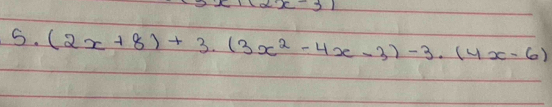 5. (2x + 8) + 3. (3x² - 4x - 3) - 3. (4x - 6)